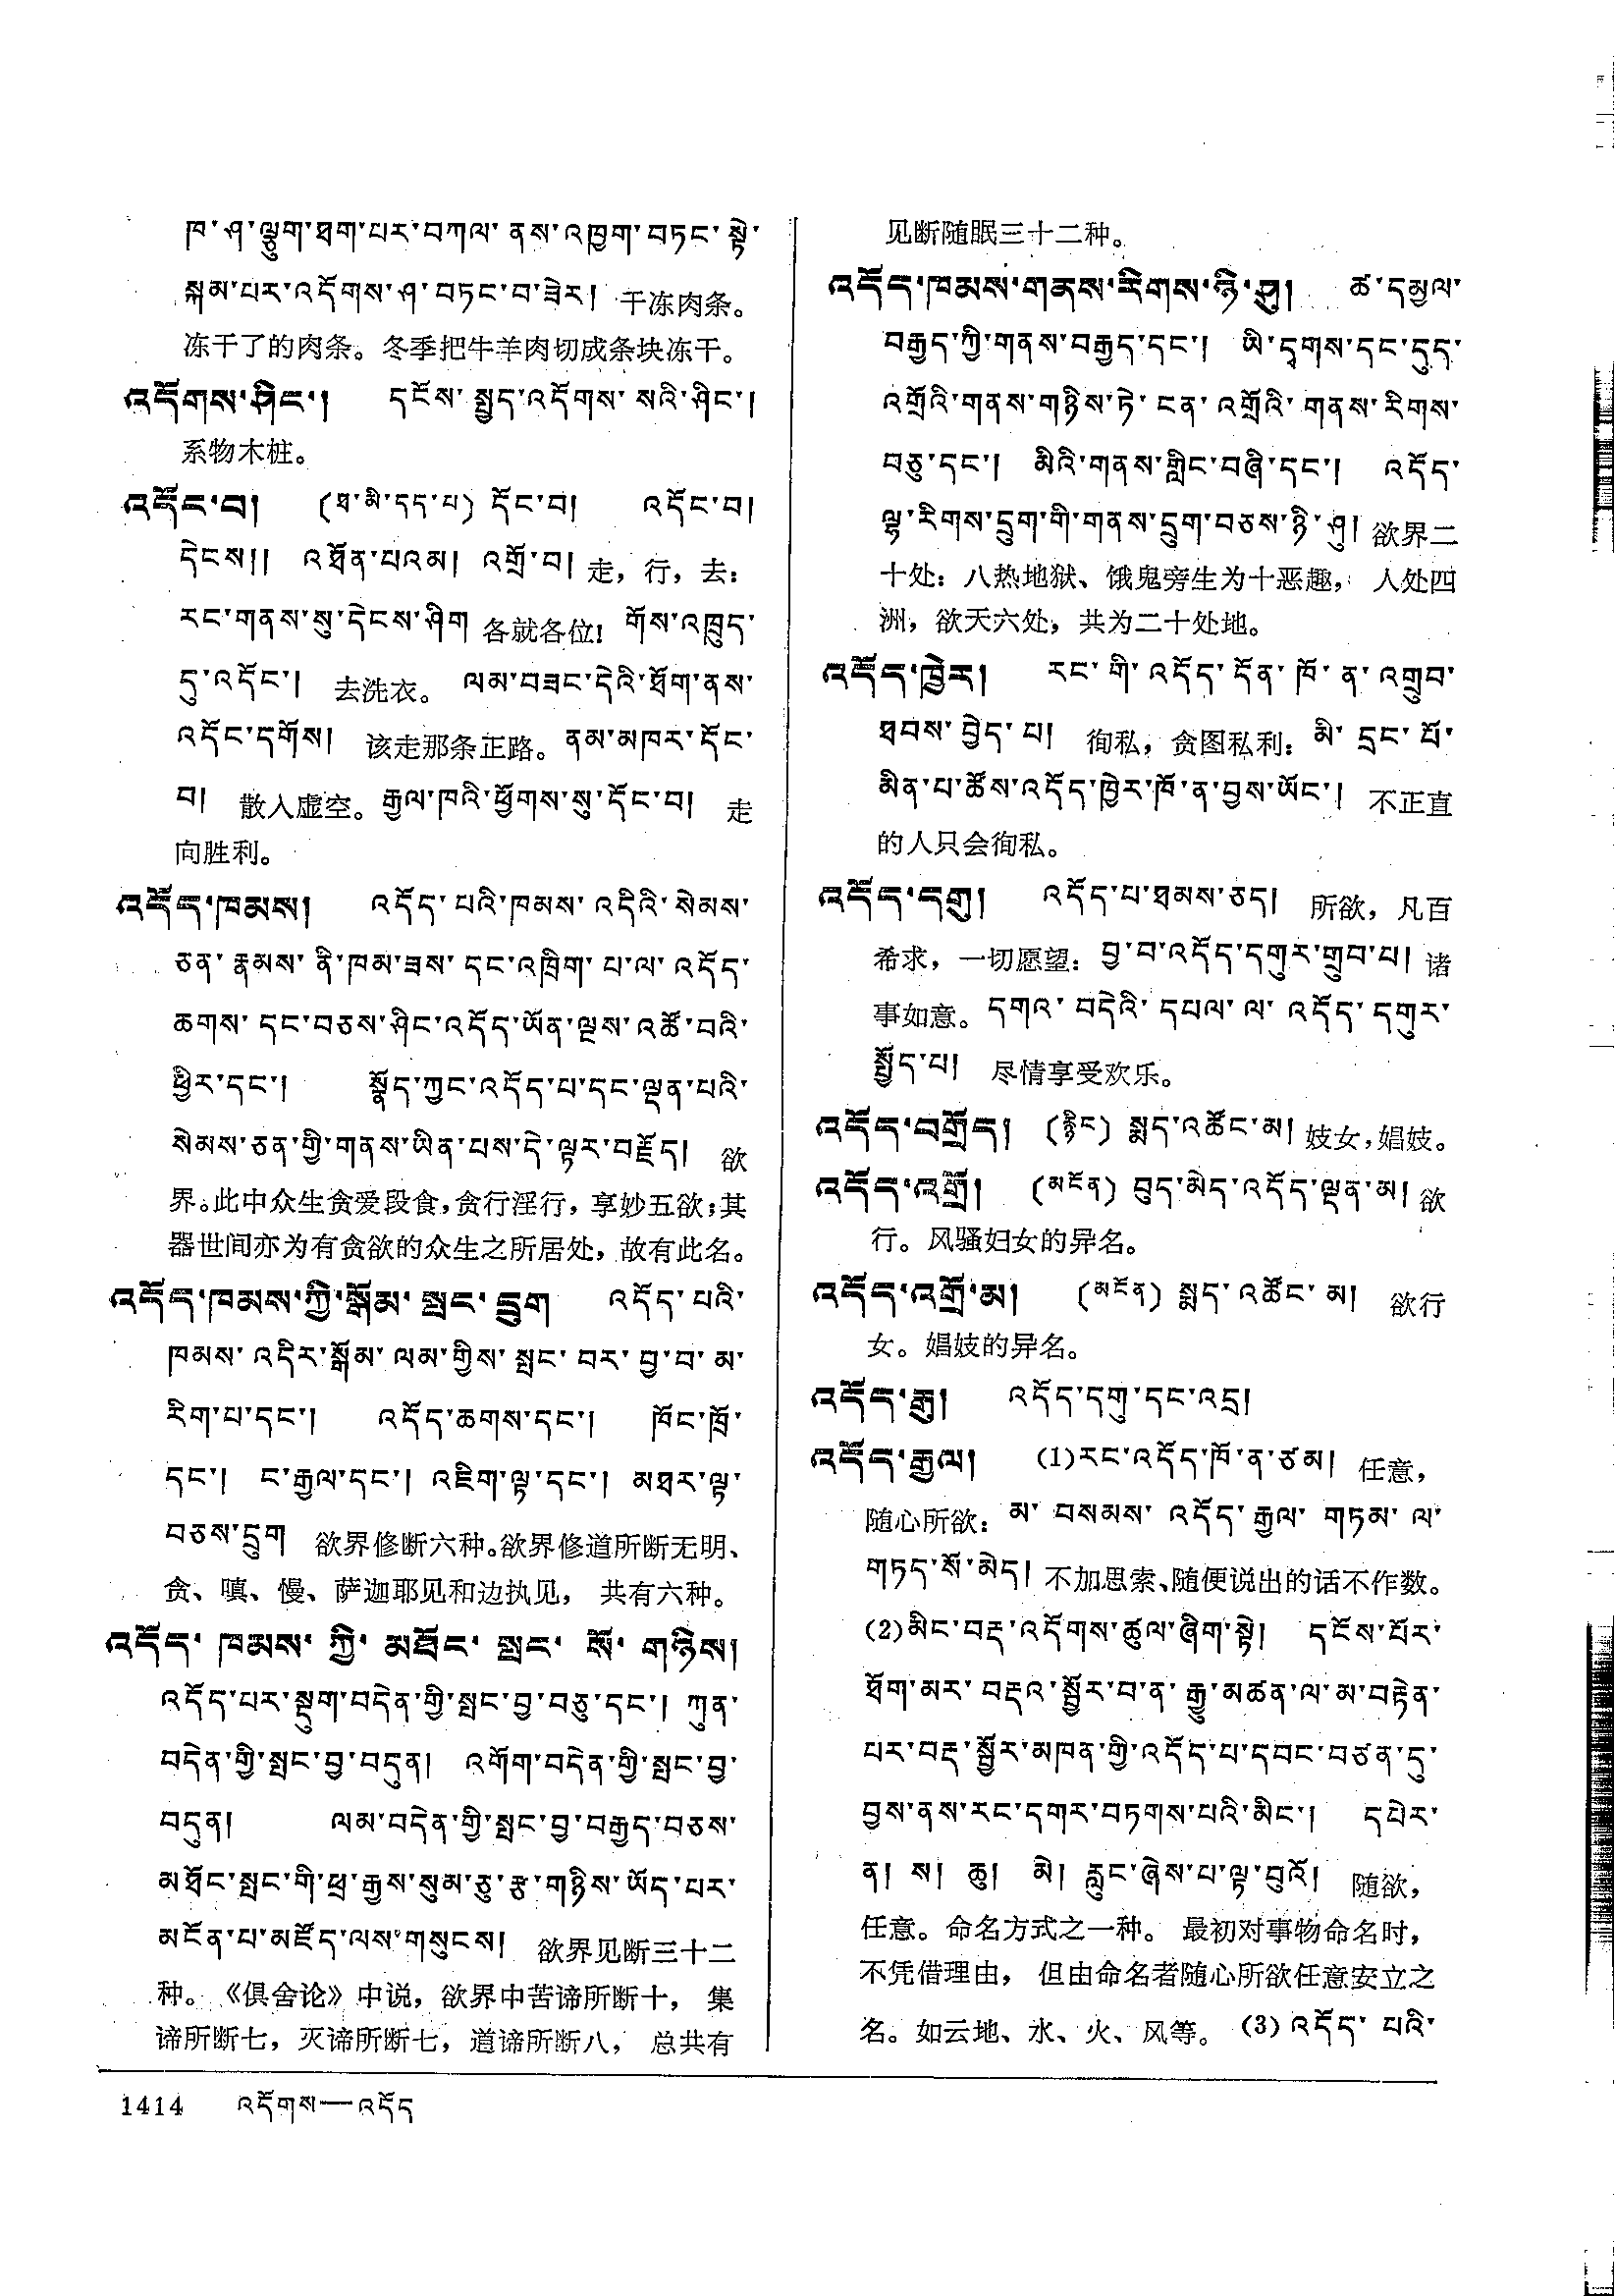 ཁ་ཤ་ལྷུག་ཐག་པར་བཀལ་ནས་འཁྱག་བཏང་སྟེ་
སྐམ་པར་འདོགས་ཤ་བཏང་བ་ཟེར། 干冻肉条。
冻干了的肉条。冬季把牛羊肉切成条块冻干。
འདོགས་ཤིང་། དངོས་སྤྱད་འདོགས་སའི་ཤིང་།
系物木桩。
འདོང་བ། (ཐ་མི་དད་པ) དོང་བ། འདོང་བ།
དེངས།། འཐོན་པའམ། འགྲོ་བ། 走，行，去：
རང་གནས་སུ་དེངས་ཤིག 各就各位！ གོས་འཁྲུད་
དུ་འདོང་། 去洗衣。 ལམ་བཟང་དེའི་ཐོག་ནས་
འདོང་དགོས། 该走那条正路。 ནམ་མཁར་དོང་
བ། 散入虚空。 རྒྱལ་ཁའི་ཕྱོགས་སུ་དོང་བ། 走
向胜利。
འདོད་ཁམས། འདོད་པའི་ཁམས་འདིའི་སེམས་
ཅན་རྣམས་ནི་ཁམ་ཟས་དང་འཁྲིག་པ་ལ་འདོད་
ཆགས་དང་བཅས་ཤིང་འདོད་ཡོན་ལྔས་འཚོ་བའི་
ཕྱིར་དང་། སྣོད་ཀྱང་འདོད་པ་དང་ལྡན་པའི་
སེམས་ཅན་གྱི་གནས་ཡིན་པས་དེ་ལྟར་བརྗོད། 欲
界。此中众生贪爱段食，贪行淫行，享妙五欲；其
器世间亦为有贪欲的众生之所居处，故有此名。
འདོད་ཁམས་ཀྱི་སྒོམ་སྤང་དྲུག འདོད་པའི་
ཁམས་འདིར་སྒོམ་ལམ་གྱིས་སྤང་བར་བྱ་བ་མ་
རིག་པ་དང་། འདོད་ཆགས་དང་། ཁོང་ཁྲོ་
དང་། ང་རྒྱལ་དང་། འཇིག་ལྟ་དང་། མཐར་ལྟ་
བཅས་དྲུག 欲界修断六种。欲界修道所断无明、
贪、嗔、慢、萨迦耶见和边执见，共有六种。
འདོད་ཁམས་ཀྱི་མཐོང་སྤང་སོ་གཉིས།
འདོད་པར་སྡུག་བདེན་གྱི་སྤང་བྱ་བཅུ་དང་། ཀུན་
བདེན་གྱི་སྤང་བྱ་བདུན། འགོག་བདེན་གྱི་སྤང་བྱ་
བདུན། ལམ་བདེན་གྱི་སྤང་བྱ་བརྒྱད་བཅས་
མཐོང་སྤང་གི་ཕྲ་རྒྱས་སུམ་ཅུ་རྩ་གཉིས་ཡོད་པར་
མངོན་པ་མཛོད་ལས་གསུངས། 欲界见断三十二
种。《俱舍论》中说，欲界中苦谛所断十，集
谛所断七，灭谛所断七，道谛所断八，总共有
见断随眠三十二种。
འདོད་ཁམས་གནས་རིགས་ཉི་ཤུ། ཚ་དམྱལ་
བརྒྱད་ཀྱི་གནས་བརྒྱད་དང་། ཡི་དྭགས་དང་དུད་
འགྲོའི་གནས་གཉིས་ཏེ་ངན་འགྲོའི་གནས་རིགས་
བཅུ་དང་། མིའི་གནས་གླིང་བཞི་དང་། འདོད་
ལྷ་རིགས་དྲུག་གི་གནས་དྲུག་བཅས་ཉི་ཤུ། 欲界二
十处：八热地狱、饿鬼旁生为十恶趣，人处四
洲，欲天六处，共为二十处地。
འདོད་ཁྱེར། རང་གི་འདོད་དོན་ཁོ་ན་འགྲུབ་
ཐབས་བྱེད་པ། 徇私，贪图私利：མི་དྲང་པོ་
མིན་པ་ཚོས་འདོད་ཁྱེར་ཁོ་ན་བྱས་ཡོང་། 不正直
的人只会徇私。
འདོད་དགུ། འདོད་པ་ཐམས་ཅད། 所欲，凡百
希求，一切愿望：བྱ་བ་འདོད་དགུར་གྲུབ་པ། 诸
事如意。 དགའ་བདེའི་དཔལ་ལ་འདོད་དགུར་
སྤྱོད་པ། 尽情享受欢乐。
འདོད་བགྲོད། (རྙིང) སྨད་འཚོང་མ། 妓女，娼妓。
འདོད་འགྲོ། (མངོན) བུད་མེད་འདོད་ལྡན་མ། 欲
行。风骚妇女的异名。
འདོད་འགྲོ་མ། (མངོན) སྨད་འཚོང་མ། 欲行
女。娼妓的异名。
འདོད་རྒུ། འདོད་དགུ་དང་འདྲ།
འདོད་རྒྱལ། (1)རང་འདོད་ཁོ་ན་ཙམ། 任意，
随心所欲：མ་བསམས་འདོད་རྒྱལ་གཏམ་ལ་
གཏད་སོ་མེད། 不加思索、随便说出的话不作数。
(2)མིང་བརྡ་འདོགས་ཚུལ་ཞིག་སྟེ། དངོས་པོར་
ཐོག་མར་བརྡའ་སྦྱོར་བ་ན་རྒྱུ་མཚན་ལ་མ་བརྟེན་
པར་བརྡ་སྦྱོར་མཁན་གྱི་འདོད་པ་དབང་བཙན་དུ་
བྱས་ནས་རང་དགར་བཏགས་པའི་མིང་། དཔེར་
ན། ས། ཆུ། མེ། རླུང་ཞེས་པ་ལྟ་བུའོ། 随欲，
任意。命名方式之一种。最初对事物命名时，
不凭借理由，但由命名者随心所欲任意安立之
名。如云地、水、火、风等。 (3)འདོད་པའི་
1414 འདོགས—འདོད